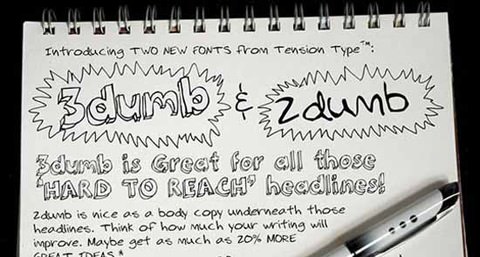 Introducing TWO NEW FONTS from Tension Type™:
3dumb & 2dumb
3dumb is Great for all those
'HARD TO REACH' headlines!
2dumb is nice as a body copy underneath those
headlines. Think of how much your writing will
improve. Maybe get as much as 20% MORE
GREAT IDEAS.*